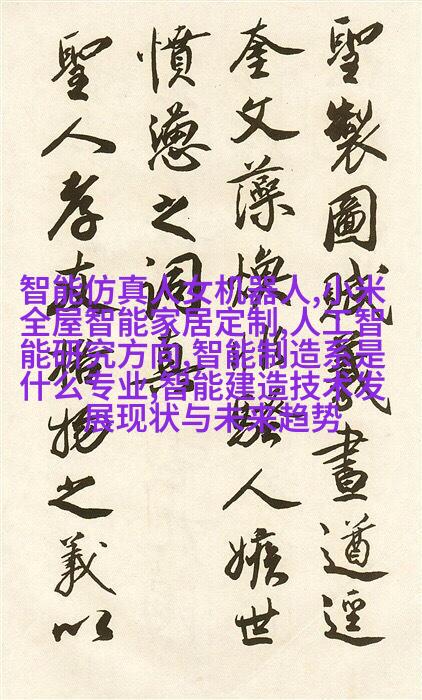 聖製圖義畫遒逕
奎文藻煥騷人嫉世
憤懣之詞真
聖人孝之義以
智能仿真人女机器人,小米
全屋智能家居定制,人工智
能研究方向,智能制造系是
什么专业,智能建造技术发
展现状与未来趋势